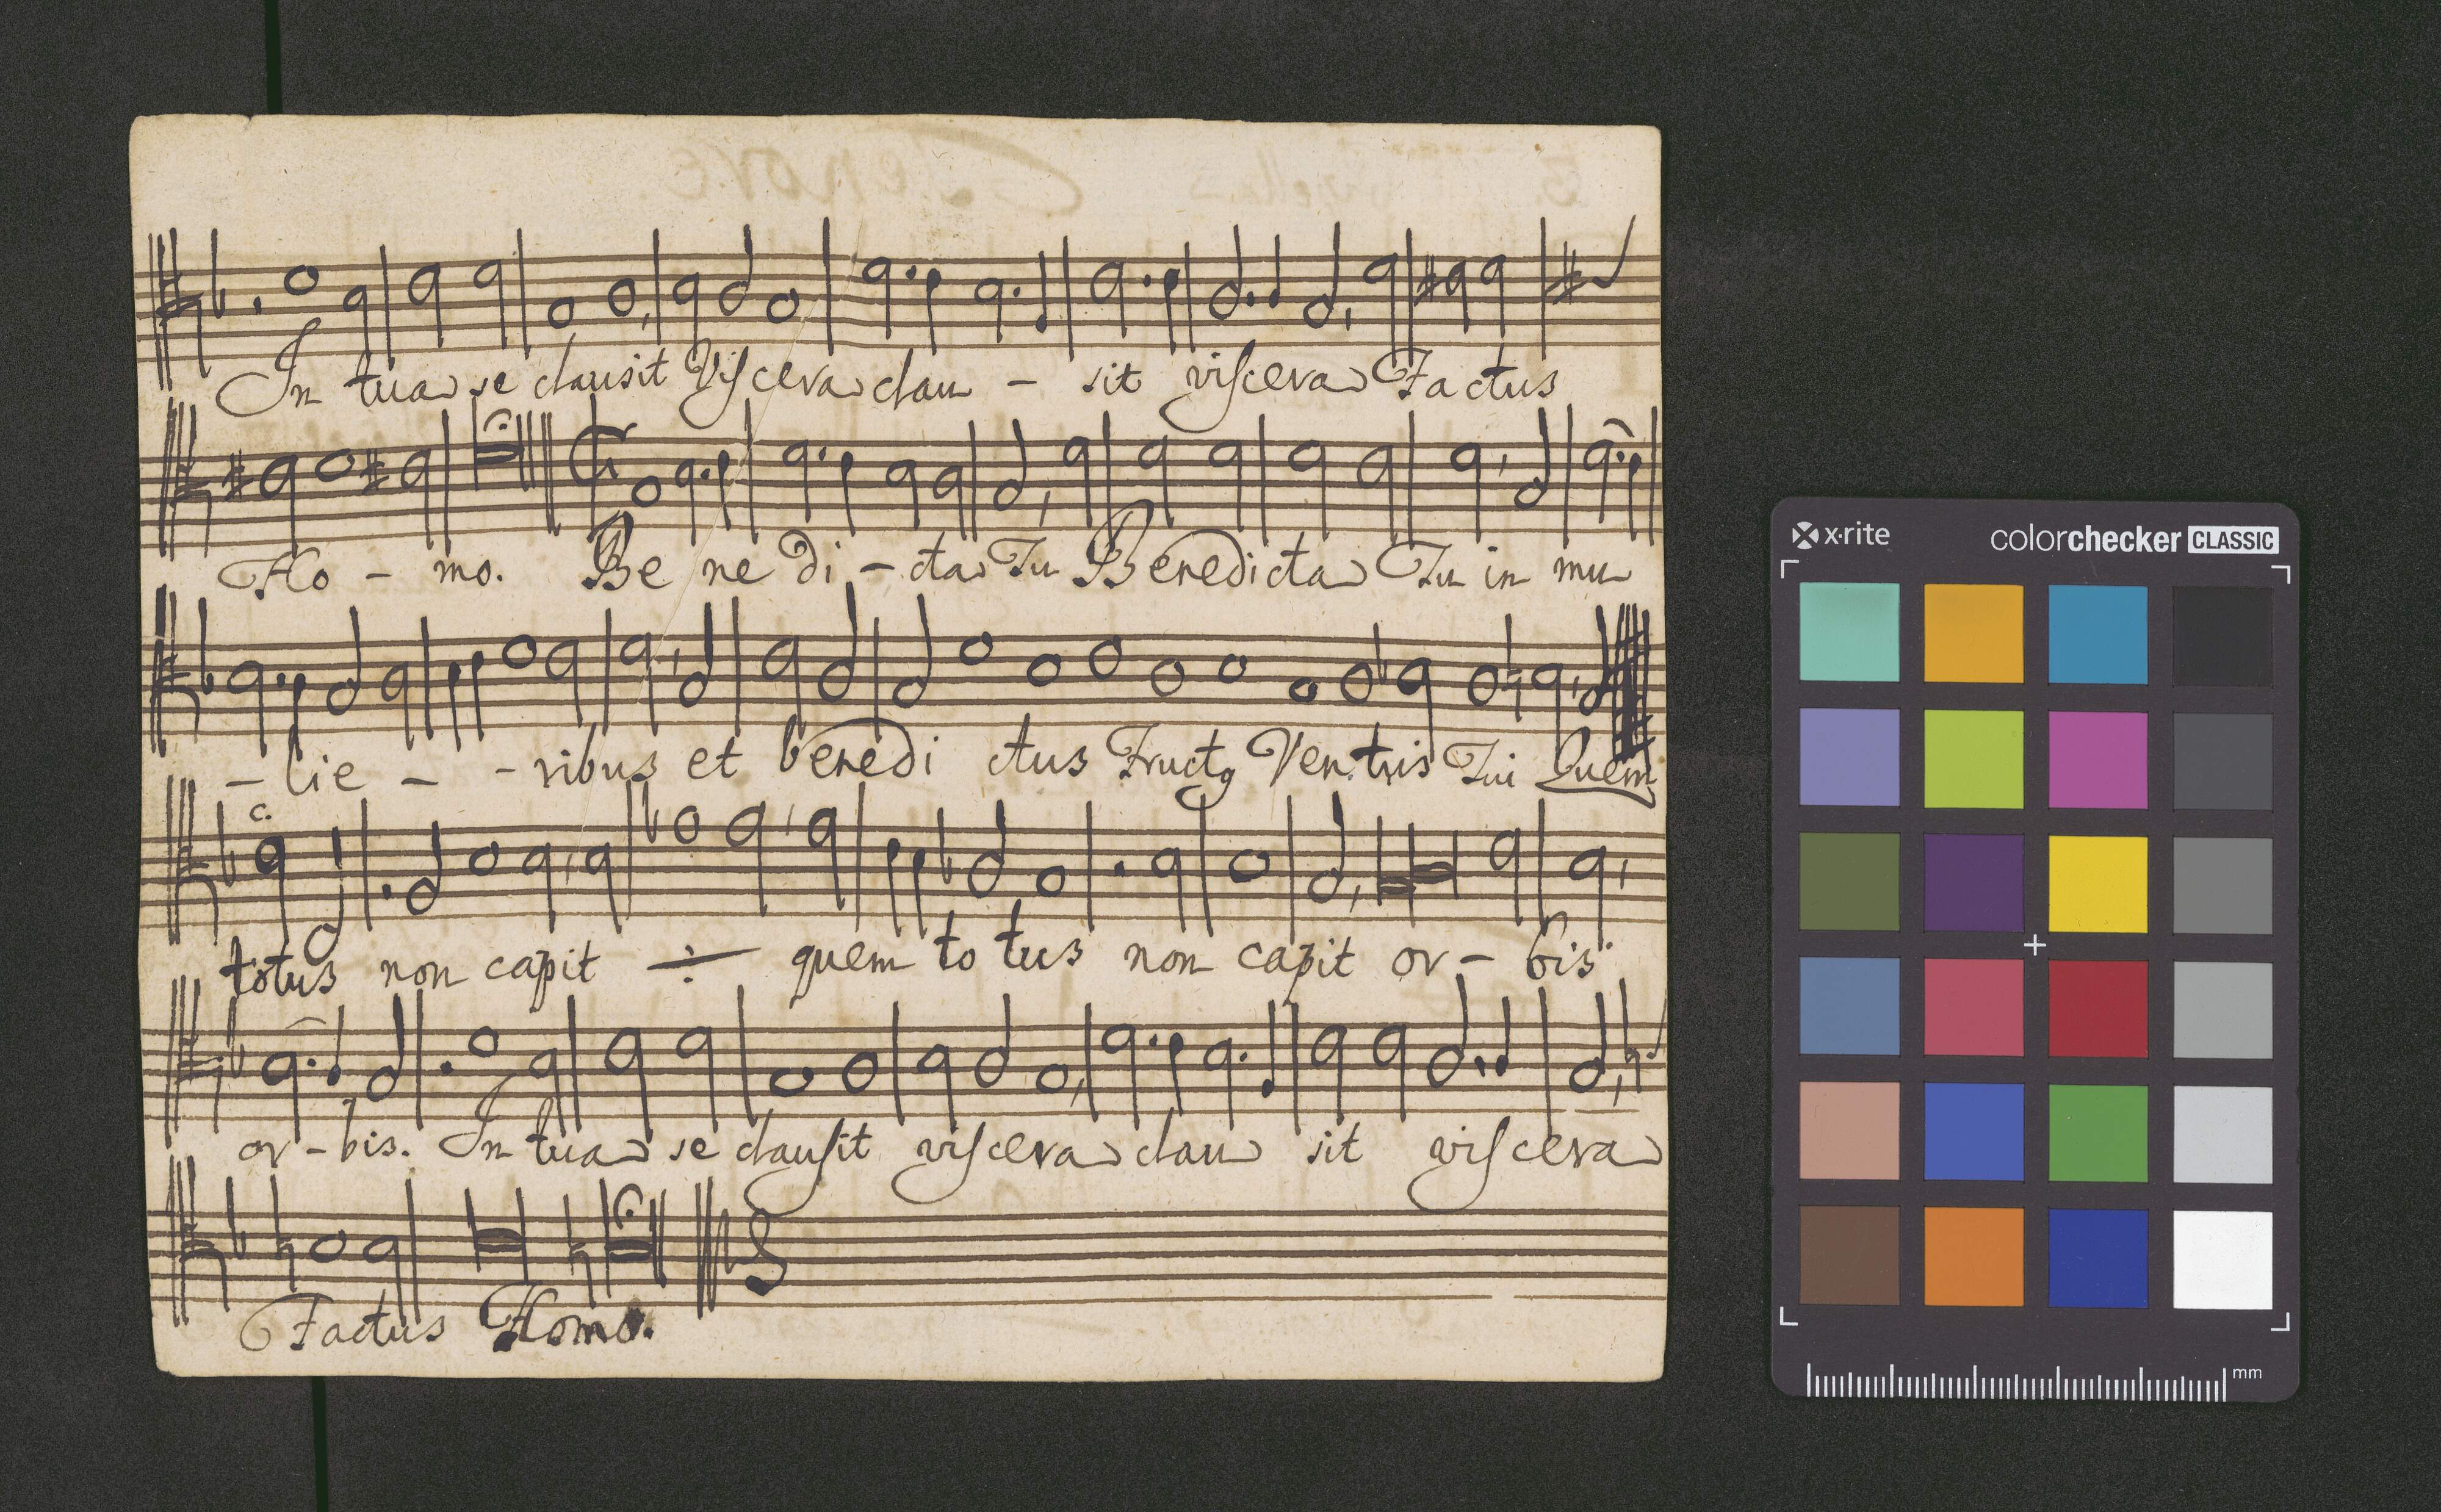 In tua se clausit Viscera clau - sit viscera Factus
Ho - mo. Be ne di - cta Tu Benedicta Tu in mu
- lie - - ribus et benedi ctus Fructꝯ Ventris Tui Quem
c.
totus non capit ÷ quem to tus non capit or - bis
or - bis. In tua se clausit viscera clau sit viscera
Factus Homo.
x·rite colorchecker CLASSIC
mm